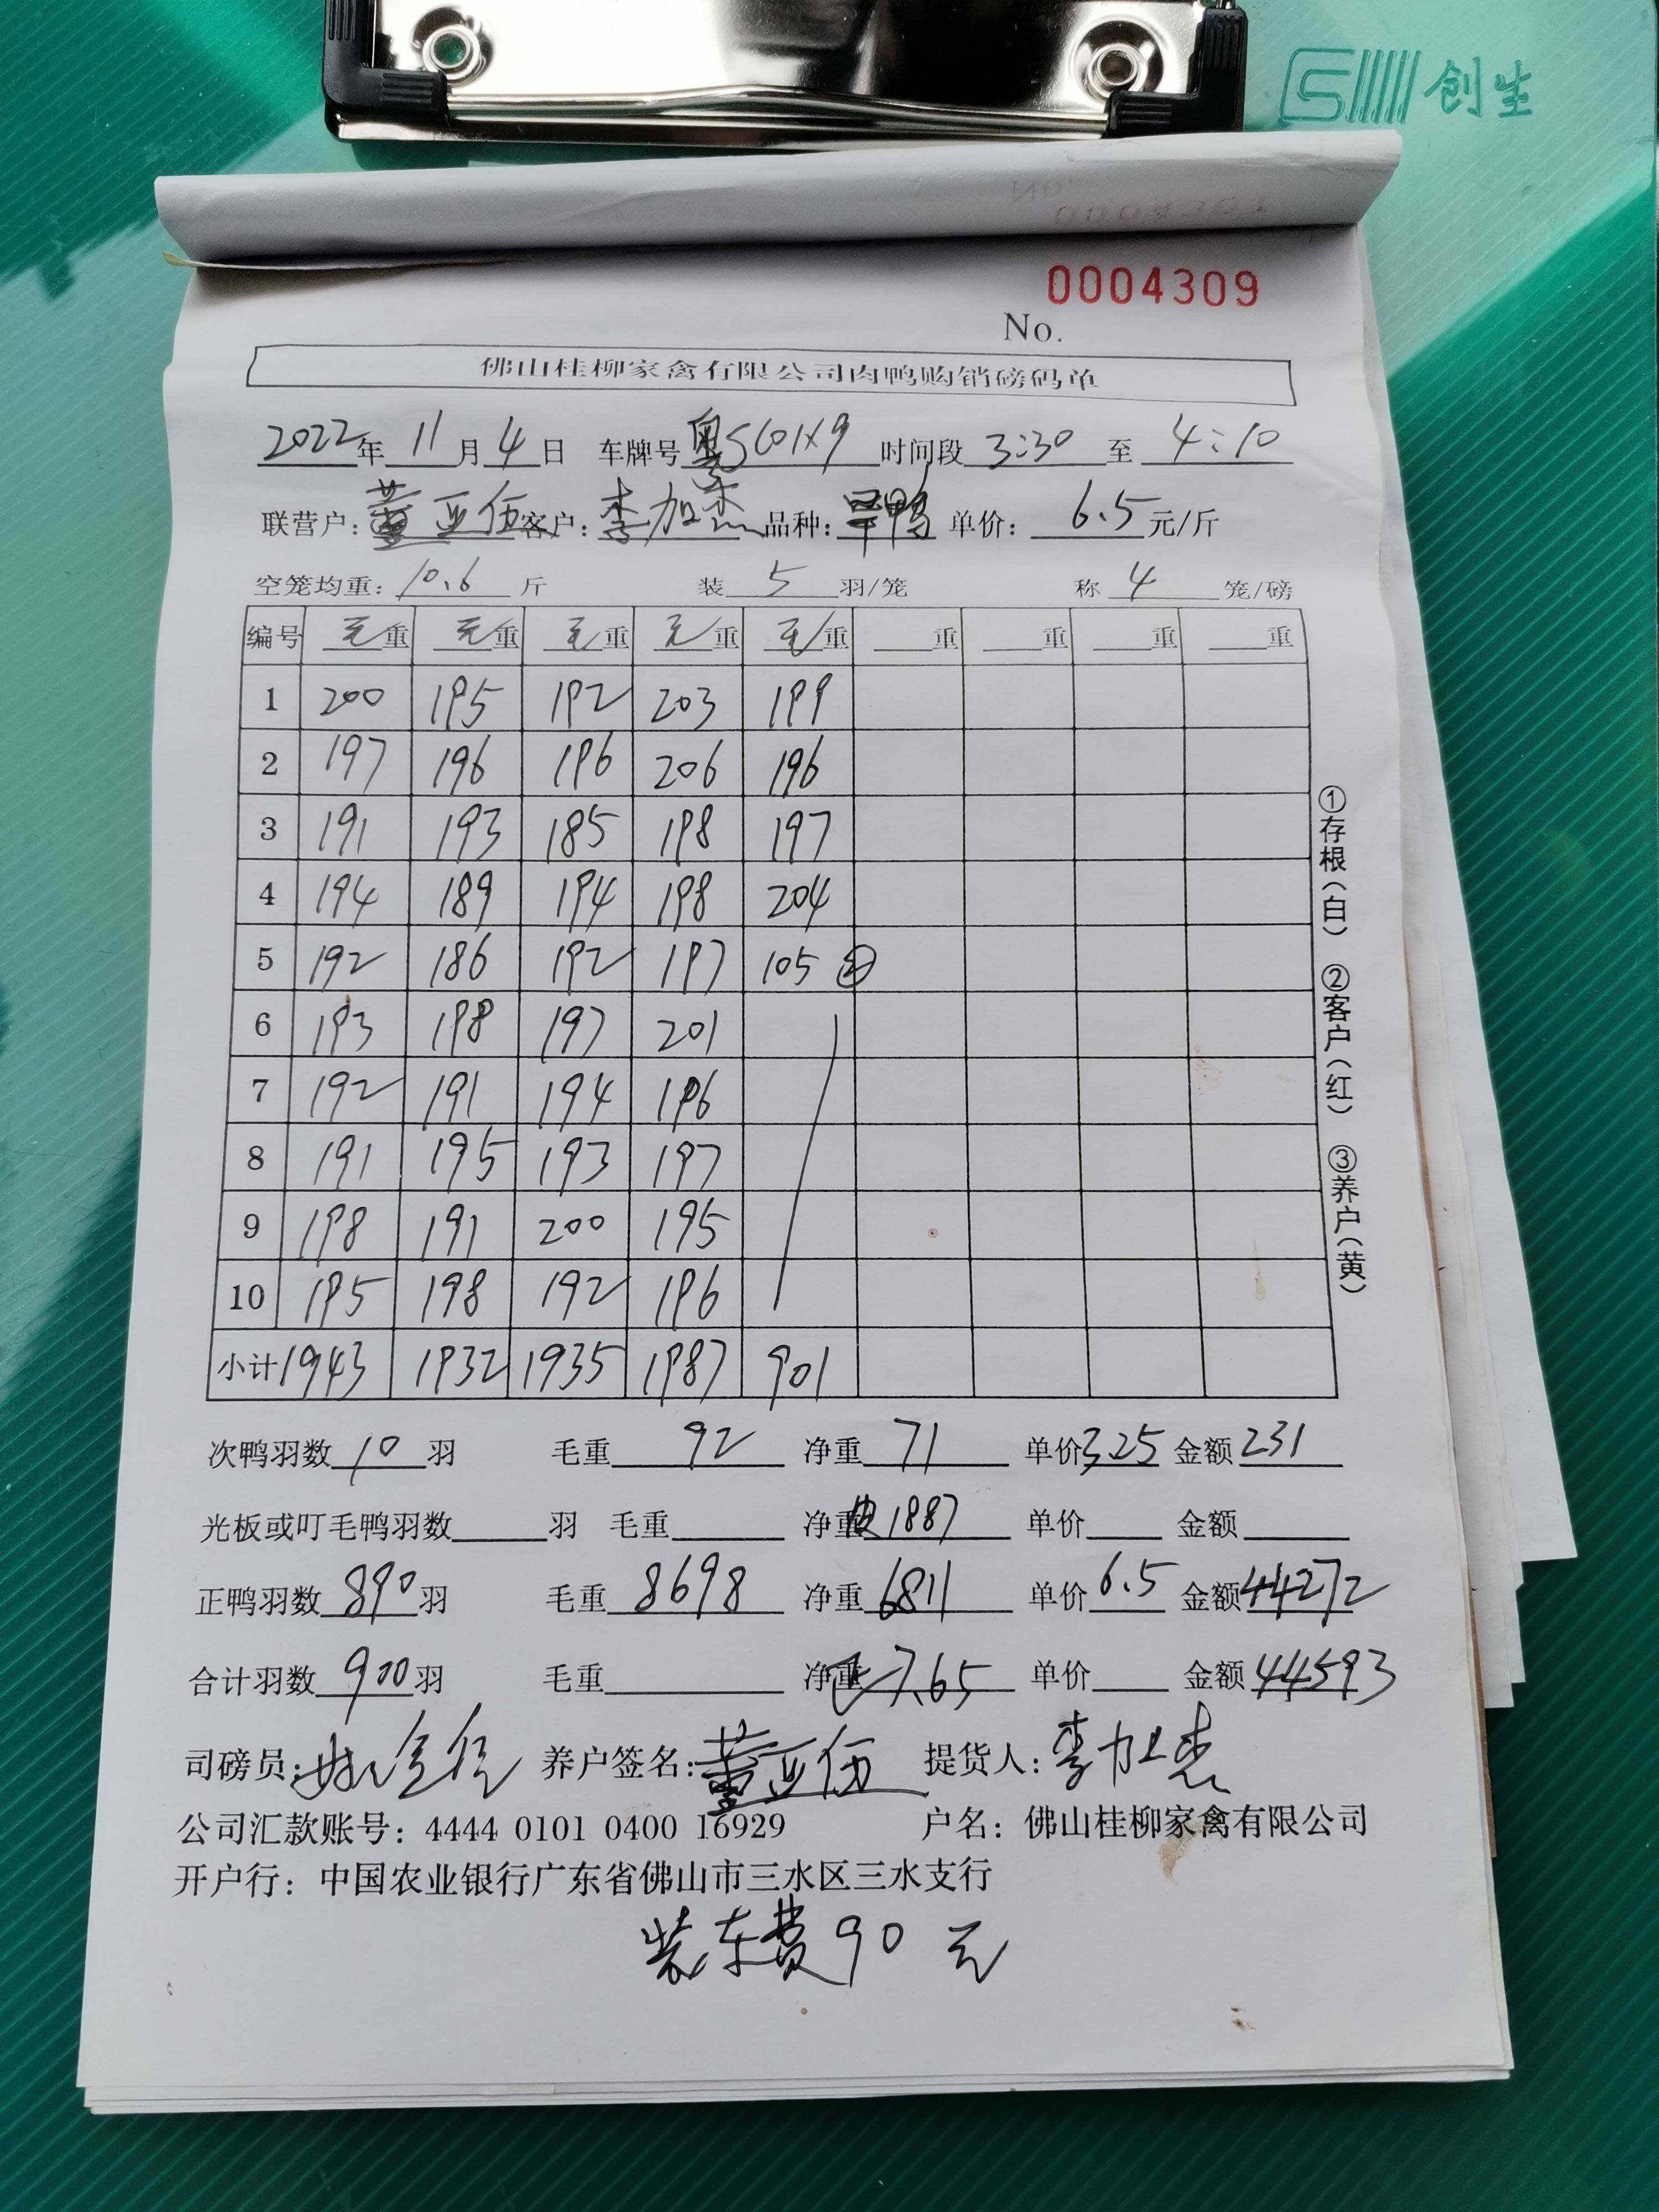 创生
0004309
No.
佛山桂柳家禽有限公司肉鸭购销磅码单
2022年 11月4日 车牌号 粤S601X9 时间段 3:30 至 4:10
联营户: 董亚伍 客户: 李加杰 品种: 鸭 单价: 6.5元/斤
空笼均重: 10.6 斤 装 5 羽/笼 称 4 笼/磅
编号 毛重 毛重 毛重 毛重 毛重 重 重 重 重
1 200 195 192 203 199
2 197 196 196 206 196
3 191 193 185 198 197
4 194 189 194 198 204
5 192 186 192 197 105 ②
6 193 198 197 201
7 192 191 194 196
8 191 195 193 197
9 198 191 200 195
10 195 198 192 196
小计 1943 1932 1935 1987 901
次鸭羽数 10 羽 毛重 92 净重 71 单价 3.25 金额 231
光板或叮毛鸭羽数 羽 毛重 净重 皮1887 单价 金额
正鸭羽数 890 羽 毛重 8698 净重 6811 单价 6.5 金额 44272
合计羽数 900 羽 毛重 净重 7.65 单价 金额 44593
司磅员: 养户签名: 董亚伍 提货人: 李加杰
公司汇款账号: 4444 0101 0400 16929 户名: 佛山桂柳家禽有限公司
开户行: 中国农业银行广东省佛山市三水区三水支行
装车费90元
①存根(白) ②客户(红) ③养户(黄)